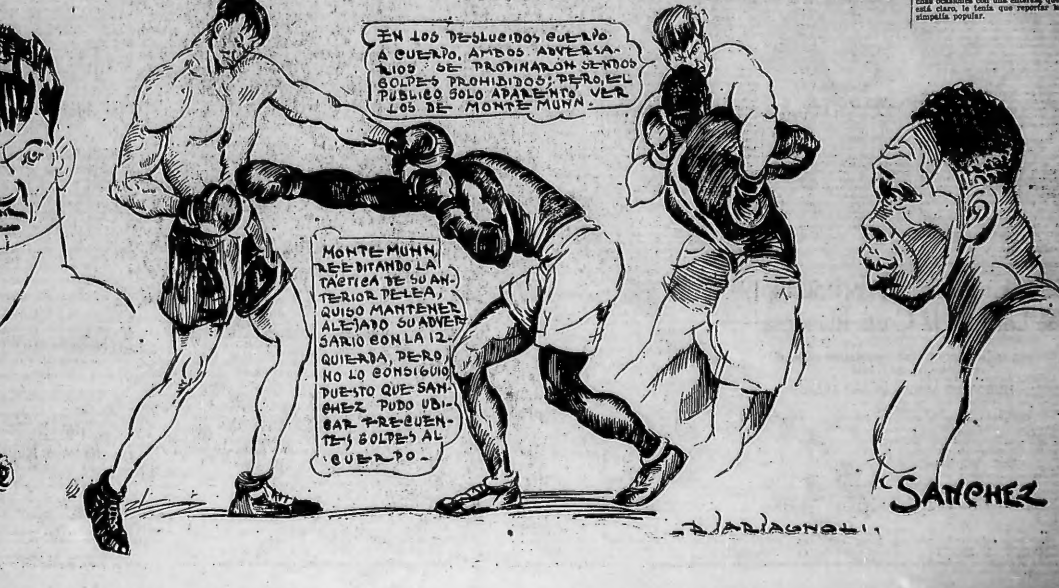 está claro, le tenía que reportar la
simpatía popular.
EN LOS DESLUCIDOS CUERPO
A CUERPO, AMBOS ADVERSA-
RIOS SE PROPINARON SENDOS
GOLPES PROHIBIDOS; PERO, EL
PUBLICO SOLO APARENTO, VER
LOS DE MONTE MUNN.
MONTE MUNN,
REEDITANDO LA
TACTICA DE SU AN-
TERIOR PELEA,
QUISO MANTENER
ALEJADO SU ADVER
SARIO CON LA IZ-
QUIERDA, PERO,
NO LO CONSIGUIO
PUESTO QUE SAN-
CHEZ PUDO UBI-
CAR FRECUEN-
TES GOLPES AL
CUERPO-
SANCHEZ